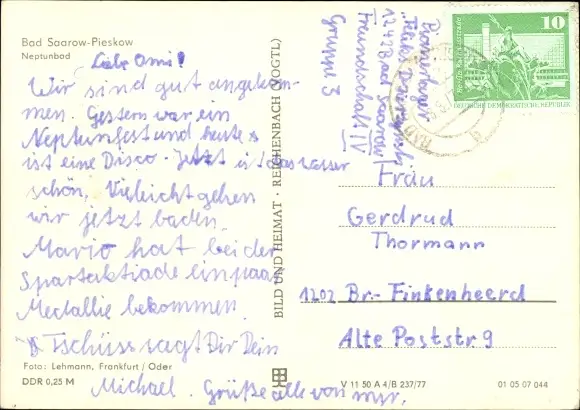 Bad Saarow-Pieskow
Neptunbad
Liebe Omi!
Wir sind gut angekom-
men. Gestern war ein
Neptunfest und heute
ist eine Disco. Jetzt ist das Wasser
schön. Vieleicht gehen
wir jetzt baden.
Mario hat bei der
Spartakiade ein paar
Medallie bekommen.
Tschüss sagt Dir Dein
Michael. Grüße alle von mir.
Foto: Lehmann, Frankfurt/Oder
DDR 0,25 M
BILD UND HEIMAT · REICHENBACH (VOGTL)
V 11 50 A 4/B 237/77
01 05 07 044
Pionierlager
"Feliks Dzierzynski"
1242 Bad Saarow
Freundschaft IV
Gruppe 3
10
DEUTSCHE DEMOKRATISCHE REPUBLIK
Frau
Gerdrud
Thormann
1202 Br.- Finkenheerd
Alte Poststr 9